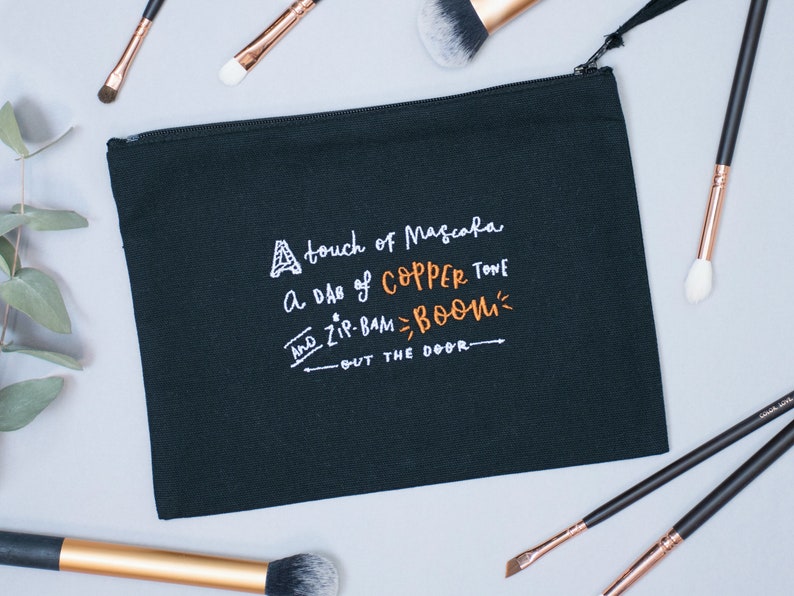 A touch of Mascara
A DAB of COPPER TONE
AND ZIP-BAM BOOM
OUT THE DOOR
COLOR LOVE